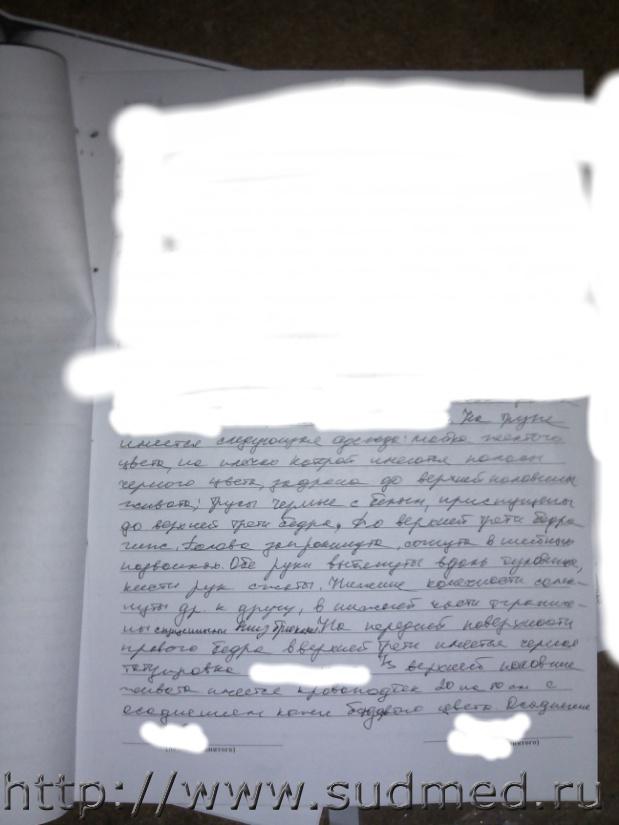 На трупе
имеется следующая одежда: майка желтого
цвета, на плечах которой имеются полосы
черного цвета, задрана до верхней половины
живота; трусы черные с белым, приспущены
до верхней трети бедра. До верхней трети бедра
гипс. Голова запрокинута, согнута в шейных
позвонках. Обе руки вытянуты вдоль туловища,
кисти рук сжаты. Нижние конечности сомк-
нуты др. к другу, в нижней части ограниче-
ны спущенными вниз брюками. На передней поверхности
правого бедра в верхней трети имеется черная
татуировка В верхней половине
живота имеется кровоподтек 20 на 10 см с
осаднением кожи бурого цвета. Осаднение
http://www.sudmed.ru